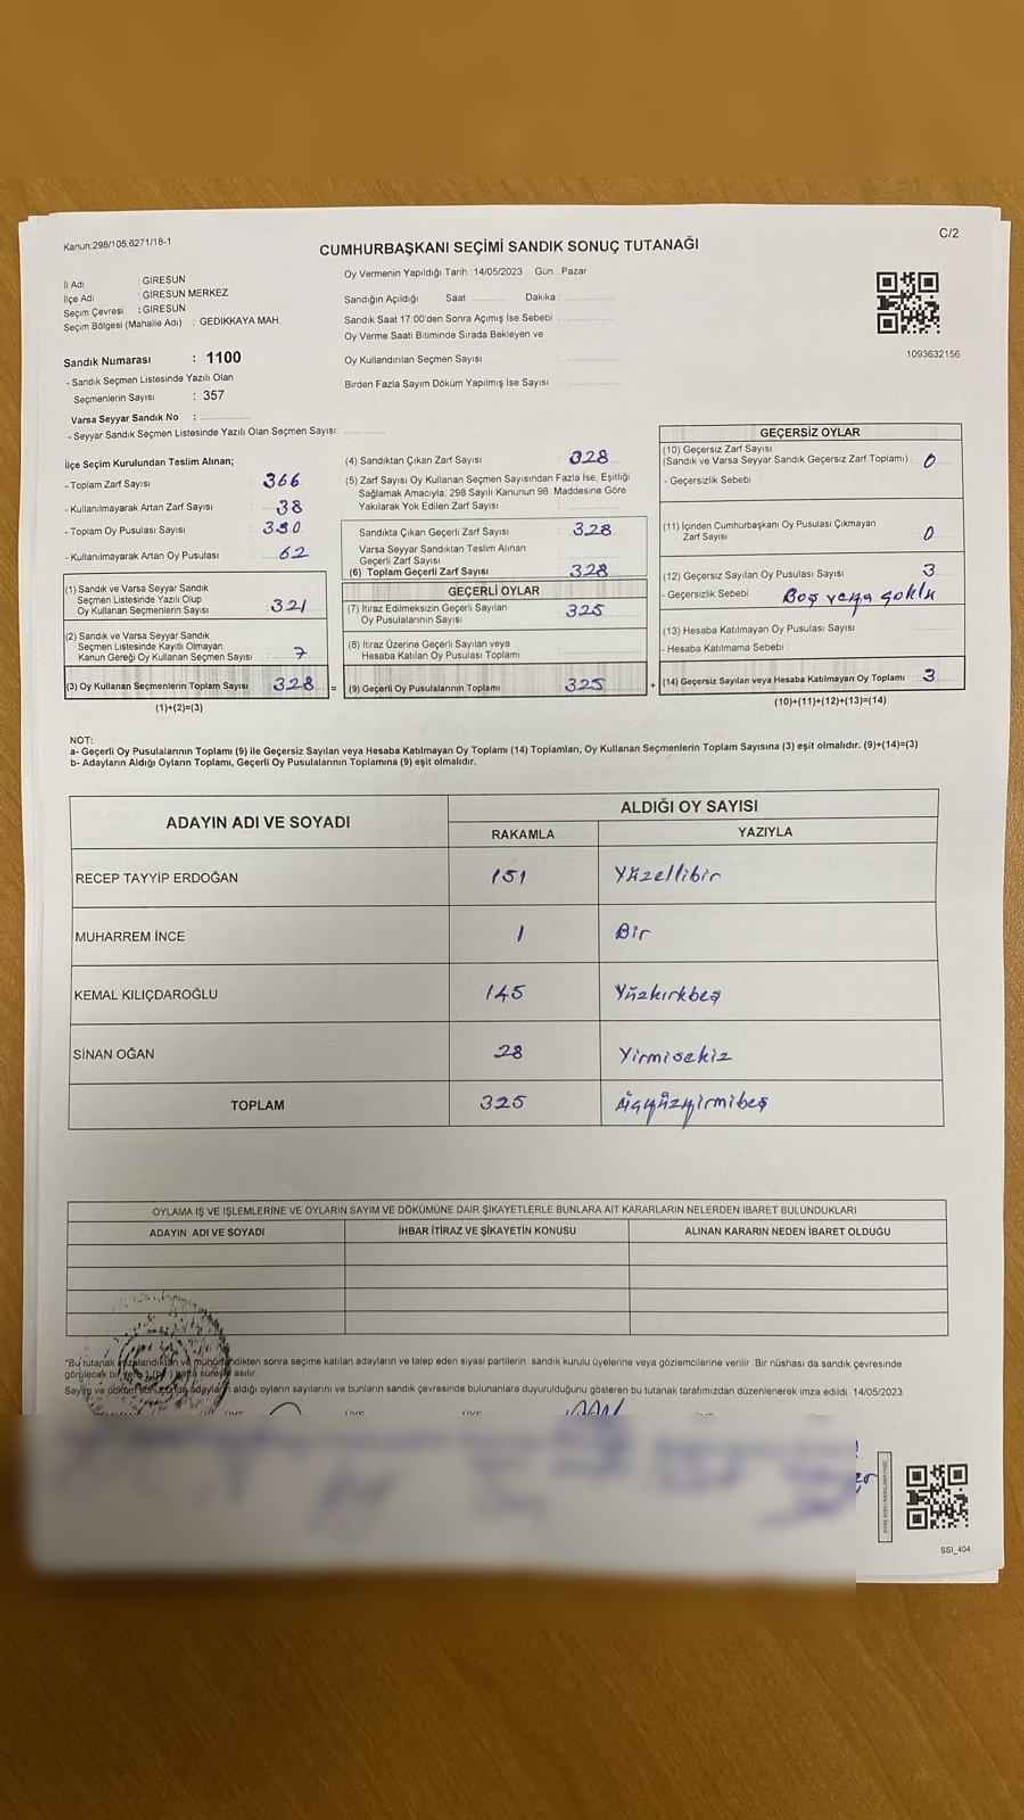 Kanun:298/105,6271/18-1
C/2
CUMHURBAŞKANI SEÇİMİ SANDIK SONUÇ TUTANAĞI
İl Adı : GİRESUN
İlçe Adı : GİRESUN MERKEZ
Seçim Çevresi : GİRESUN
Seçim Bölgesi (Mahalle Adı) : GEDİKKAYA MAH.
Sandık Numarası : 1100
- Sandık Seçmen Listesinde Yazılı Olan
Seçmenlerin Sayısı : 357
Varsa Seyyar Sandık No :
- Seyyar Sandık Seçmen Listesinde Yazılı Olan Seçmen Sayısı:
Oy Vermenin Yapıldığı Tarih :14/05/2023 Gün : Pazar
Sandığın Açıldığı Saat Dakika
Sandık Saat 17:00'den Sonra Açımış İse Sebebi
Oy Verme Saati Bitiminde Sırada Bekleyen ve
Oy Kullandırılan Seçmen Sayısı
Birden Fazla Sayım Döküm Yapılmış İse Sayısı
1093632156
İlçe Seçim Kurulundan Teslim Alınan;
- Toplam Zarf Sayısı 366
- Kullanılmayarak Artan Zarf Sayısı 38
- Toplam Oy Pusulası Sayısı
- Kullanılmayarak Artan Oy Pusulası 62
(1) Sandık ve Varsa Seyyar Sandık
Seçmen Listesinde Yazılı Olup
Oy Kullanan Seçmenlerin Sayısı 321
(2) Sandık ve Varsa Seyyar Sandık
Seçmen Listesinde Kayıtlı Olmayan
Kanun Gereği Oy Kullanan Seçmen Sayısı 7
(3) Oy Kullanan Seçmenlerin Toplam Sayısı 328 =
(1)+(2)=(3)
(4) Sandıktan Çıkan Zarf Sayısı 328
(5) Zarf Sayısı Oy Kullanan Seçmen Sayısından Fazla İse, Eşitliği
Sağlamak Amacıyla, 298 Sayılı Kanunun 98. Maddesine Göre
Yakılarak Yok Edilen Zarf Sayısı
Sandıkta Çıkan Geçerli Zarf Sayısı 328
Varsa Seyyar Sandıktan Teslim Alınan
Geçerli Zarf Sayısı
(6) Toplam Geçerli Zarf Sayısı 328
GEÇERLİ OYLAR
(7) İtiraz Edilmeksizin Geçerli Sayılan
Oy Pusulalarının Sayısı 325
(8) İtiraz Üzerine Geçerli Sayılan veya
Hesaba Katılan Oy Pusulası Toplamı
(9) Geçerli Oy Pusulalarının Toplamı 325 +
GEÇERSİZ OYLAR
(10) Geçersiz Zarf Sayısı
(Sandık ve Varsa Seyyar Sandık Geçersiz Zarf Toplamı) 0
- Geçersizlik Sebebi
(11) İçinden Cumhurbaşkanı Oy Pusulası Çıkmayan
Zarf Sayısı 0
(12) Geçersiz Sayılan Oy Pusulası Sayısı 3
- Geçersizlik Sebebi Boş veya çoklu
(13) Hesaba Katılmayan Oy Pusulası Sayısı
- Hesaba Katılmama Sebebi
(14) Geçersiz Sayılan veya Hesaba Katılmayan Oy Toplamı 3
(10)+(11)+(12)+(13)=(14)
NOT:
a- Geçerli Oy Pusulalarının Toplamı (9) ile Geçersiz Sayılan veya Hesaba Katılmayan Oy Toplamı (14) Toplamları, Oy Kullanan Seçmenlerin Toplam Sayısına (3) eşit olmalıdır. (9)+(14)=(3)
b- Adayların Aldığı Oyların Toplamı, Geçerli Oy Pusulalarının Toplamına (9) eşit olmalıdır.
ADAYIN ADI VE SOYADI ALDIĞI OY SAYISI
RAKAMLA YAZIYLA
RECEP TAYYİP ERDOĞAN 151 Yüzellibir
MUHARREM İNCE 1 Bir
KEMAL KILIÇDAROĞLU 145 Yüzkırkbeş
SİNAN OĞAN 28 Yirmisekiz
TOPLAM 325 üçyüzyirmibeş
OYLAMA İŞ VE İŞLEMLERİNE VE OYLARIN SAYIM VE DÖKÜMÜNE DAİR ŞİKAYETLERLE BUNLARA AİT KARARLARIN NELERDEN İBARET BULUNDUKLARI
ADAYIN ADI VE SOYADI İHBAR İTİRAZ VE ŞİKAYETİN KONUSU ALINAN KARARIN NEDEN İBARET OLDUĞU
"Bu tutanak imzalandıktan ve mühürlendikten sonra seçime katılan adayların ve talep eden siyasi partilerin sandık kurulu üyelerine veya gözlemcilerine verilir. Bir nüshası da sandık çevresinde
görülecek bir yere asılır.
Sayım ve döküm sonucunda adayların aldığı oyların sayılarını ve bunların sandık çevresinde bulunanlara duyurulduğunu gösteren bu tutanak tarafımızdan düzenlenerek imza edildi. 14/05/2023
SSI_404